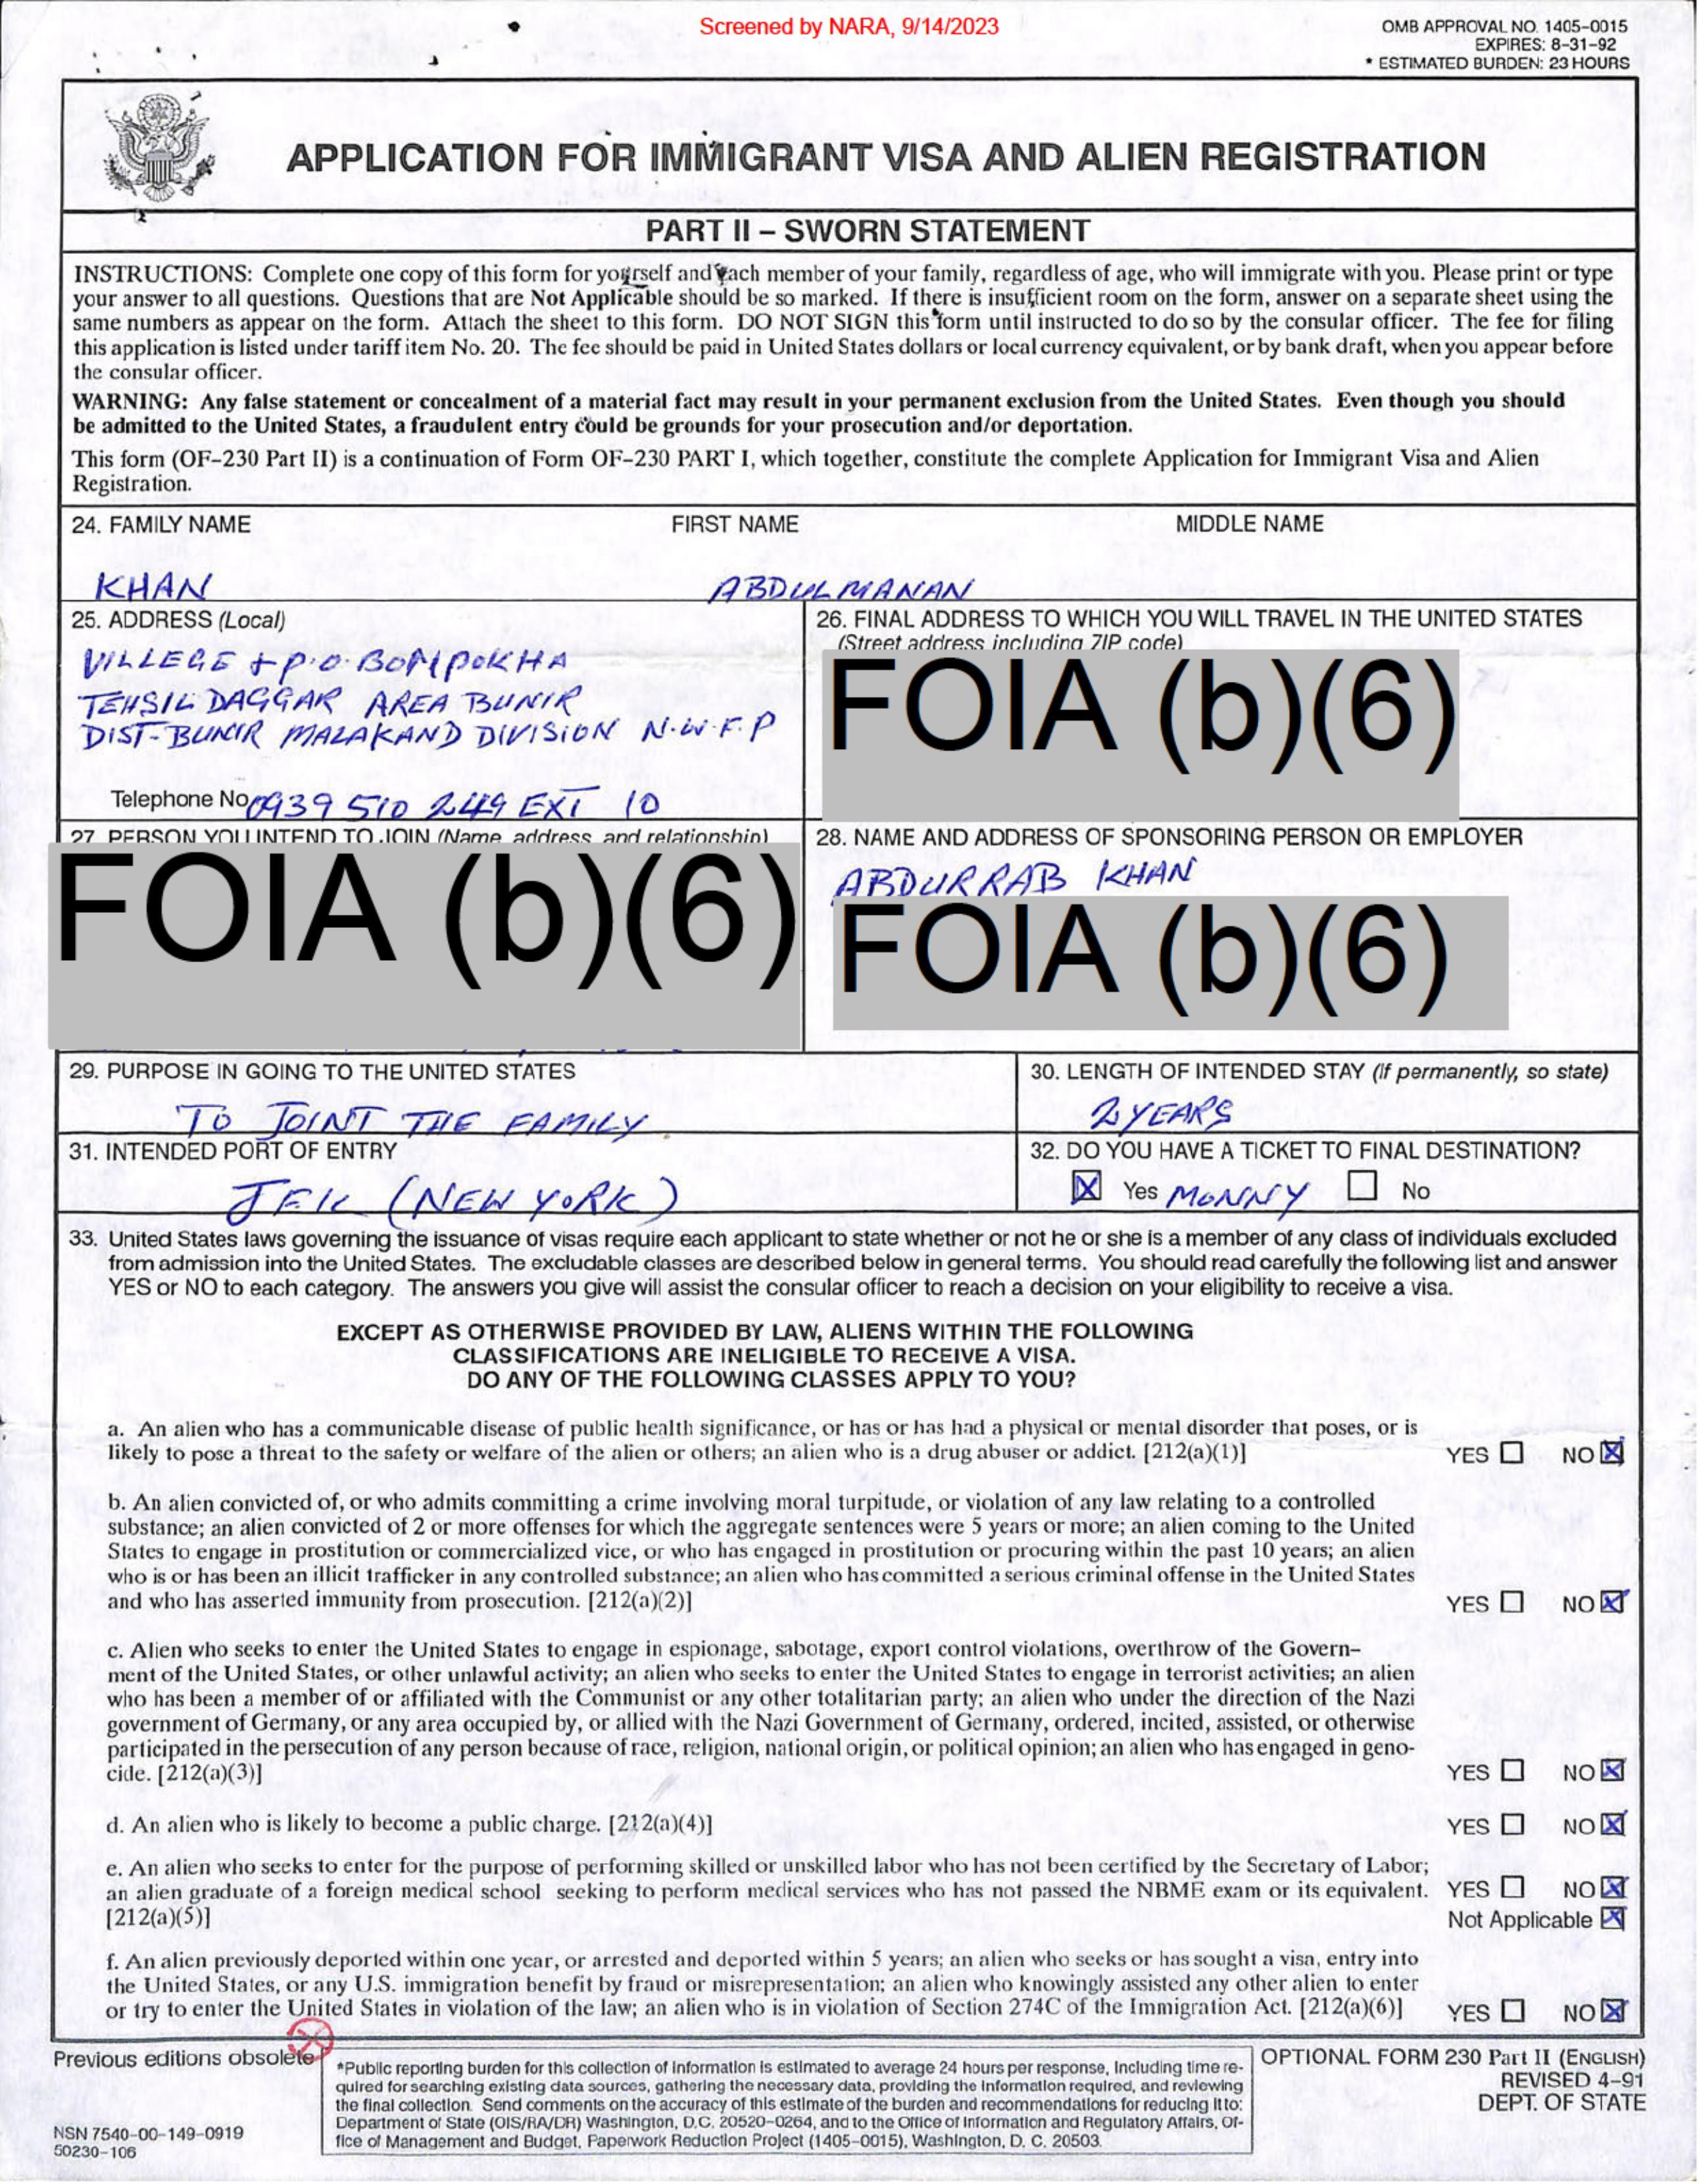 Screened by NARA, 9/14/2023
OMB APPROVAL NO. 1405-0015
EXPIRES: 8-31-92
* ESTIMATED BURDEN: 23 HOURS
APPLICATION FOR IMMIGRANT VISA AND ALIEN REGISTRATION
PART II – SWORN STATEMENT
INSTRUCTIONS: Complete one copy of this form for yourself and each member of your family, regardless of age, who will immigrate with you. Please print or type
your answer to all questions. Questions that are Not Applicable should be so marked. If there is insufficient room on the form, answer on a separate sheet using the
same numbers as appear on the form. Attach the sheet to this form. DO NOT SIGN this form until instructed to do so by the consular officer. The fee for filing
this application is listed under tariff item No. 20. The fee should be paid in United States dollars or local currency equivalent, or by bank draft, when you appear before
the consular officer.
WARNING: Any false statement or concealment of a material fact may result in your permanent exclusion from the United States. Even though you should
be admitted to the United States, a fraudulent entry could be grounds for your prosecution and/or deportation.
This form (OF-230 Part II) is a continuation of Form OF-230 PART I, which together, constitute the complete Application for Immigrant Visa and Alien
Registration.
24. FAMILY NAME FIRST NAME MIDDLE NAME
KHAN ABDULMANAN
25. ADDRESS (Local)
VILLEGE + P.O. BOMPOKHA
TEHSIL DAGGAR AREA BUNIR
DIST-BUNIR MALAKAND DIVISION N.W.F.P
Telephone No. 0939 510 249 EXT 10
26. FINAL ADDRESS TO WHICH YOU WILL TRAVEL IN THE UNITED STATES
(Street address including ZIP code)
FOIA (b)(6)
27. PERSON YOU INTEND TO JOIN (Name, address, and relationship)
FOIA (b)(6)
28. NAME AND ADDRESS OF SPONSORING PERSON OR EMPLOYER
ABDURRAB KHAN
FOIA (b)(6)
29. PURPOSE IN GOING TO THE UNITED STATES
TO JOINT THE FAMILY
30. LENGTH OF INTENDED STAY (If permanently, so state)
2 YEARS
31. INTENDED PORT OF ENTRY
JFK (NEW YORK)
32. DO YOU HAVE A TICKET TO FINAL DESTINATION?
Yes MONNY No
33. United States laws governing the issuance of visas require each applicant to state whether or not he or she is a member of any class of individuals excluded
from admission into the United States. The excludable classes are described below in general terms. You should read carefully the following list and answer
YES or NO to each category. The answers you give will assist the consular officer to reach a decision on your eligibility to receive a visa.
EXCEPT AS OTHERWISE PROVIDED BY LAW, ALIENS WITHIN THE FOLLOWING
CLASSIFICATIONS ARE INELIGIBLE TO RECEIVE A VISA.
DO ANY OF THE FOLLOWING CLASSES APPLY TO YOU?
a. An alien who has a communicable disease of public health significance, or has or has had a physical or mental disorder that poses, or is
likely to pose a threat to the safety or welfare of the alien or others; an alien who is a drug abuser or addict. [212(a)(1)] YES NO
b. An alien convicted of, or who admits committing a crime involving moral turpitude, or violation of any law relating to a controlled
substance; an alien convicted of 2 or more offenses for which the aggregate sentences were 5 years or more; an alien coming to the United
States to engage in prostitution or commercialized vice, or who has engaged in prostitution or procuring within the past 10 years; an alien
who is or has been an illicit trafficker in any controlled substance; an alien who has committed a serious criminal offense in the United States
and who has asserted immunity from prosecution. [212(a)(2)] YES NO
c. Alien who seeks to enter the United States to engage in espionage, sabotage, export control violations, overthrow of the Govern-
ment of the United States, or other unlawful activity; an alien who seeks to enter the United States to engage in terrorist activities; an alien
who has been a member of or affiliated with the Communist or any other totalitarian party; an alien who under the direction of the Nazi
government of Germany, or any area occupied by, or allied with the Nazi Government of Germany, ordered, incited, assisted, or otherwise
participated in the persecution of any person because of race, religion, national origin, or political opinion; an alien who has engaged in geno-
cide. [212(a)(3)] YES NO
d. An alien who is likely to become a public charge. [212(a)(4)] YES NO
e. An alien who seeks to enter for the purpose of performing skilled or unskilled labor who has not been certified by the Secretary of Labor;
an alien graduate of a foreign medical school seeking to perform medical services who has not passed the NBME exam or its equivalent. YES NO
[212(a)(5)] Not Applicable
f. An alien previously deported within one year, or arrested and deported within 5 years; an alien who seeks or has sought a visa, entry into
the United States, or any U.S. immigration benefit by fraud or misrepresentation; an alien who knowingly assisted any other alien to enter
or try to enter the United States in violation of the law; an alien who is in violation of Section 274C of the Immigration Act. [212(a)(6)] YES NO
Previous editions obsolete
*Public reporting burden for this collection of information is estimated to average 24 hours per response, including time re-
quired for searching existing data sources, gathering the necessary data, providing the information required, and reviewing
the final collection. Send comments on the accuracy of this estimate of the burden and recommendations for reducing it to:
Department of State (OIS/RA/DR) Washington, D.C. 20520-0264, and to the Office of Information and Regulatory Affairs, Of-
fice of Management and Budget, Paperwork Reduction Project (1405-0015), Washington, D. C. 20503.
OPTIONAL FORM 230 Part II (ENGLISH)
REVISED 4-91
DEPT. OF STATE
NSN 7540-00-149-0919
50230-106